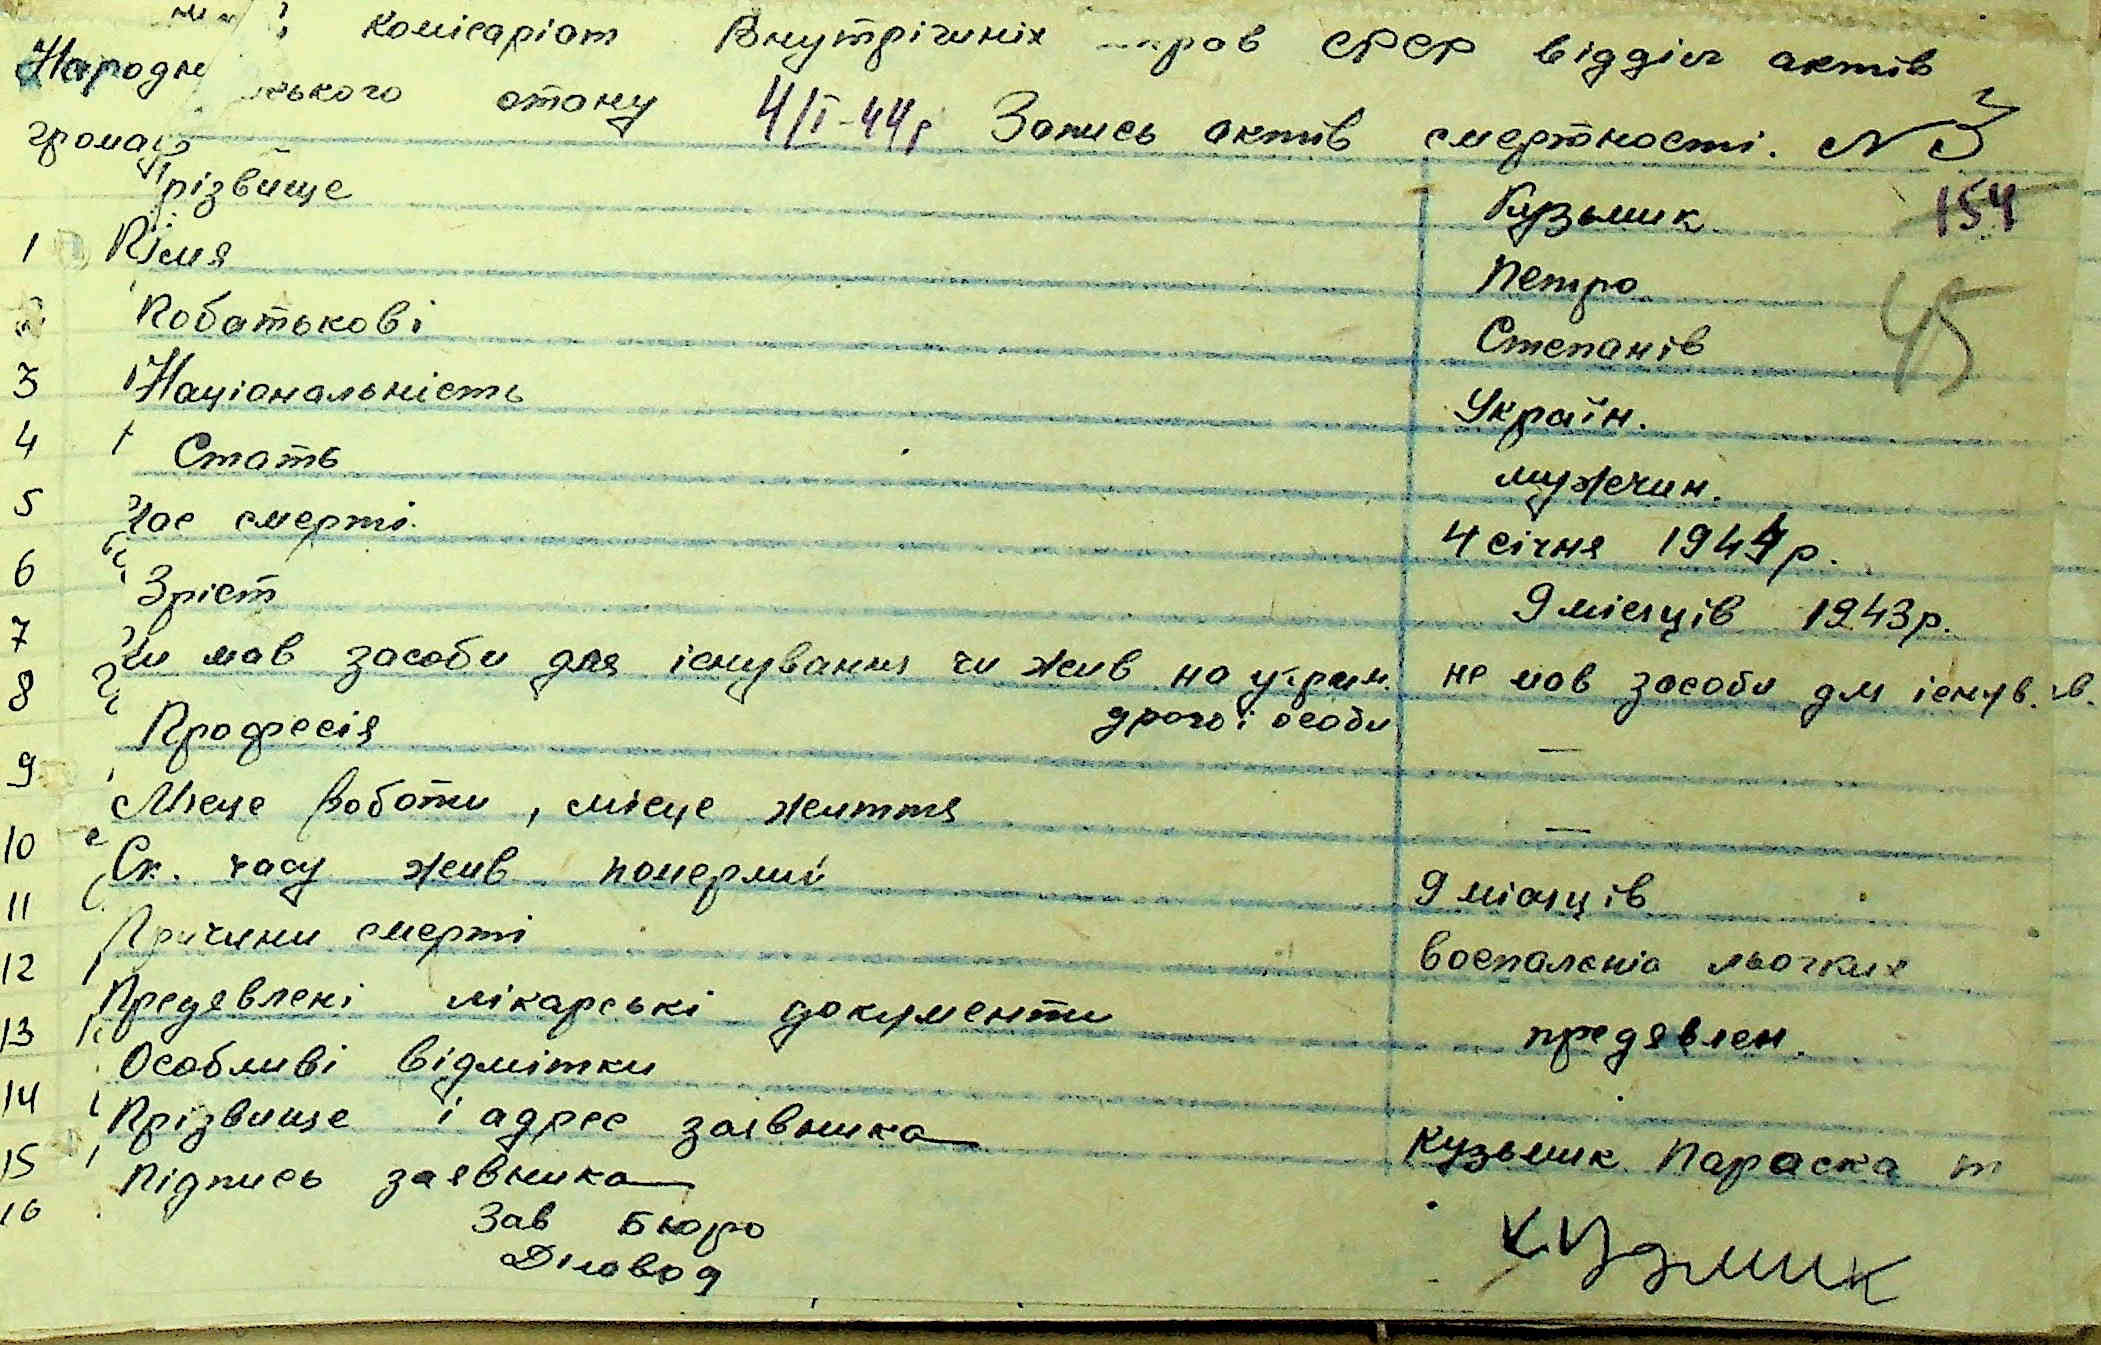 Народн комісаріат Внутрішніх справ СРСР відділ актів
громад ського стану 4/I-44р Запись актів смертности. N 3
Прізвище Кузьмик 154
1 Імя Петро 45
2 Побатькові Степанів
3 Національність Україн.
4 Стать мужчин.
5 Час смерті. 4 січня 1944р.
6 Зріст 9 місяців 1943р.
7 Чи мав засоби для існування чи жив на утрим. не мав засоби для існув.
8 другої особи
Професія —
9 Місце роботи, місце життя —
10 Ск. часу жив померлий 9 місяців
11 Причини смерті воспаленіа льогких
12 Предявлені лікарські документи предявлен.
13 Особливі відмітки
14 Прізвище і адрес заявника Кузьмик Параска
15 Підпись заявника
16 Зав Бюро Кудмик
Діловод